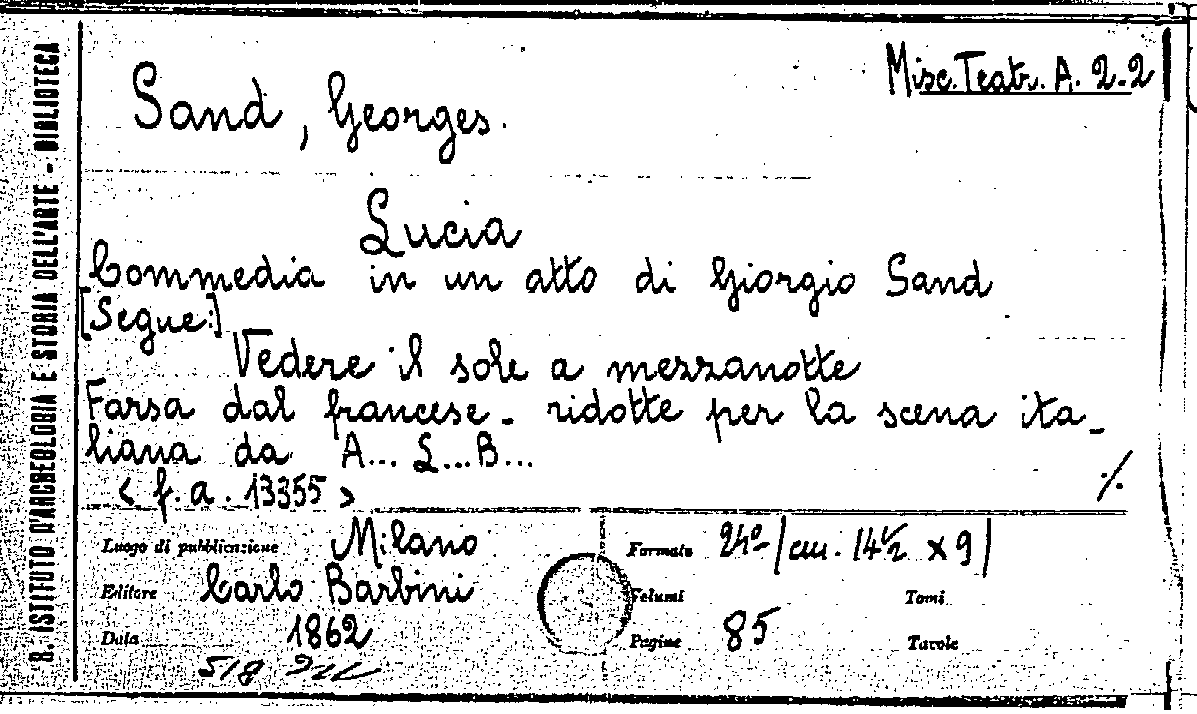 R. ISTITUTO D'ARCHEOLOGIA E STORIA DELL'ARTE - BIBLIOTECA
Misc. Teatr. A. 2-2
Sand, Georges.
Lucia
Commedia in un atto di Giorgio Sand
[Segue:]
Vedere il sole a mezzanotte
Farsa dal francese - ridotte per la scena ita-
liana da A... L... B...
< f. a. 13355 >
./.
Luogo di pubblicazione Milano
Formato 24º |cm. 14½ x 9|
Editore Carlo Barbini
Volumi
Tomi
Data 1862
Pagine 85
Tavole